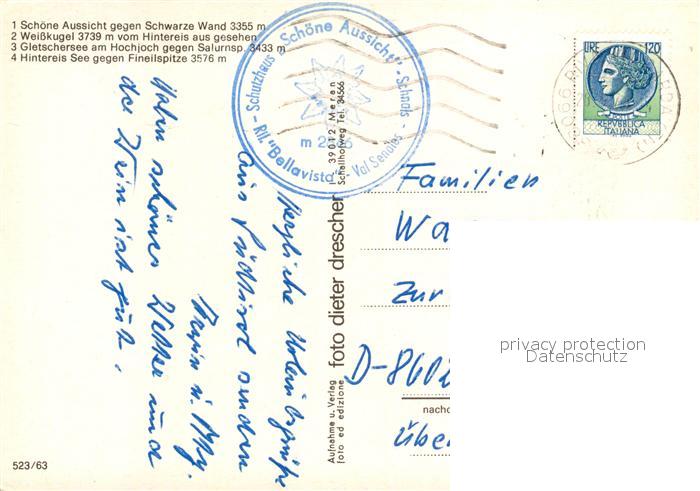 1 Schöne Aussicht gegen Schwarze Wand 3355 m
2 Weißkugel 3739 m vom Hintereis aus gesehen
3 Gletschersee am Hochjoch gegen Salurnsp. 3433 m
4 Hintereis See gegen Fineilspitze 3576 m
Schutzhaus „Schöne Aussicht“ - Schnals -
Rif. "Bellavista" - Val Senales -
LIRE 120
REPVBBLICA
ITALIANA
Herzliche Urlaubsgrüße
aus Südtirol senden
u.
Haben schönes Wetter und
der Wein ist gut.
Aufnahme u. Verlag
foto ed edizione
foto dieter drescher
I - 39012 Meran
Schallhofweg Tel. 34566
Familien
Wa
Zur
D-8602
nacho
Übe
privacy protection
Datenschutz
523/63